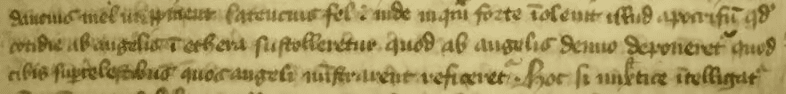 mel
fel : inde forte iolenit istud apocrifu qd
cotidie ab angelis i ethera sustolleretur quod ab angelis denuo deponeret quod
cibis supcelestibus quos angeli mistrarent reficeret . Hoc si mistice itelligat